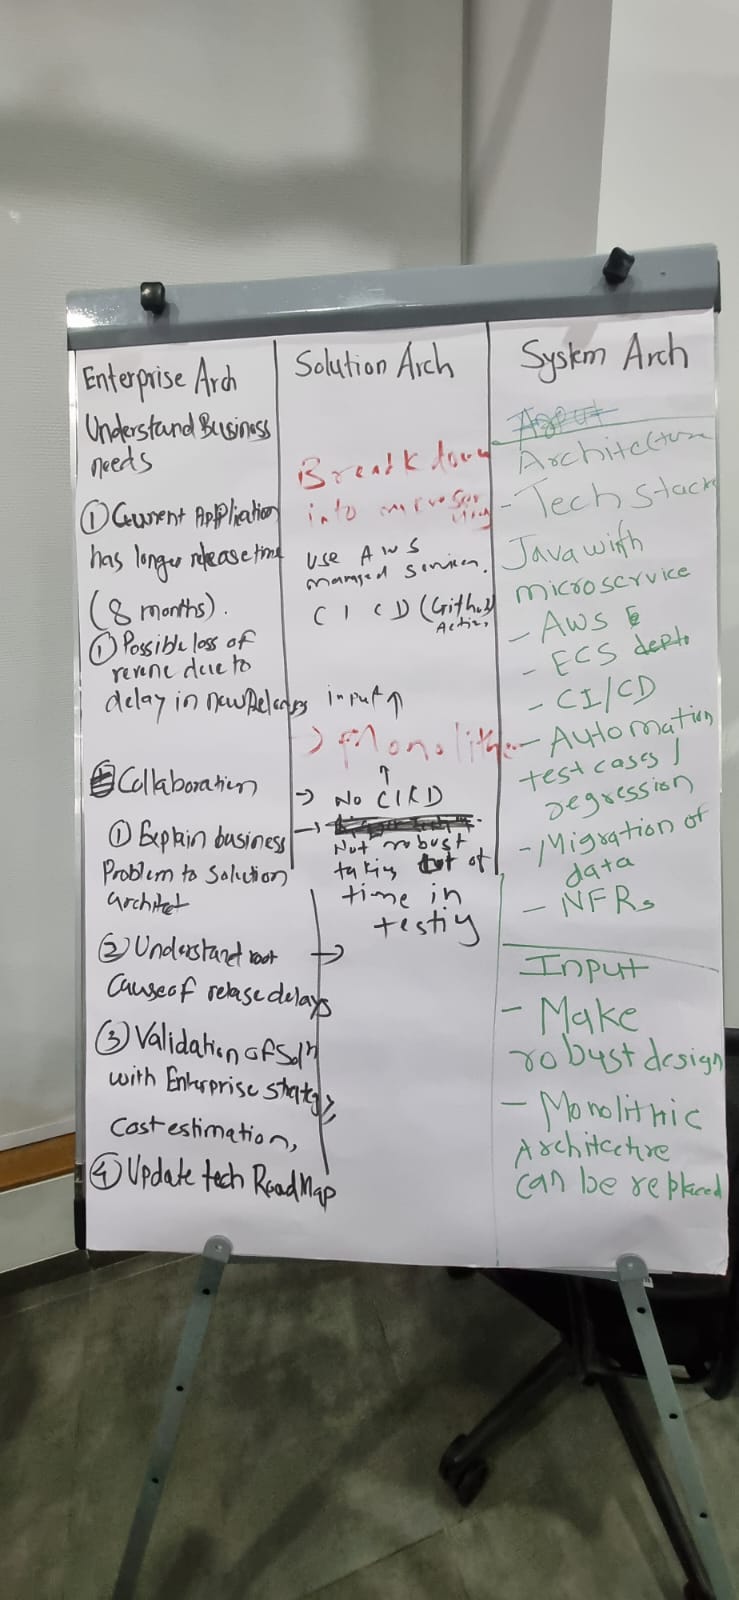 Enterprise Arch
Understand Business
needs
① Current Application
has longer release time
(8 months).
① Possible loss of
revene due to
delay in new Releases
Collaboration
① Explain business
Problem to solution
architet
② Understand root
cause of relase delays
③ Validation of Soln
with Enterprise strategy,
cost estimation,
④ Update tech Road Map
Solution Arch
Break down
into microser
vices
use AWS
managed services.
CI CD (Github
Actios
input ↑
→ Monolithe
↑
→ No CICD
→
Not robust
taking lot of
time in
testig
→
System Arch
Architecture
- Tech stack
Java with
microservice
- AWS
- ECS
- CI/CD
- Automation
test cases /
regression
- Migration of
data
- NFRs
Input
- Make
robust design
- Monolithic
Architectre
can be replaced